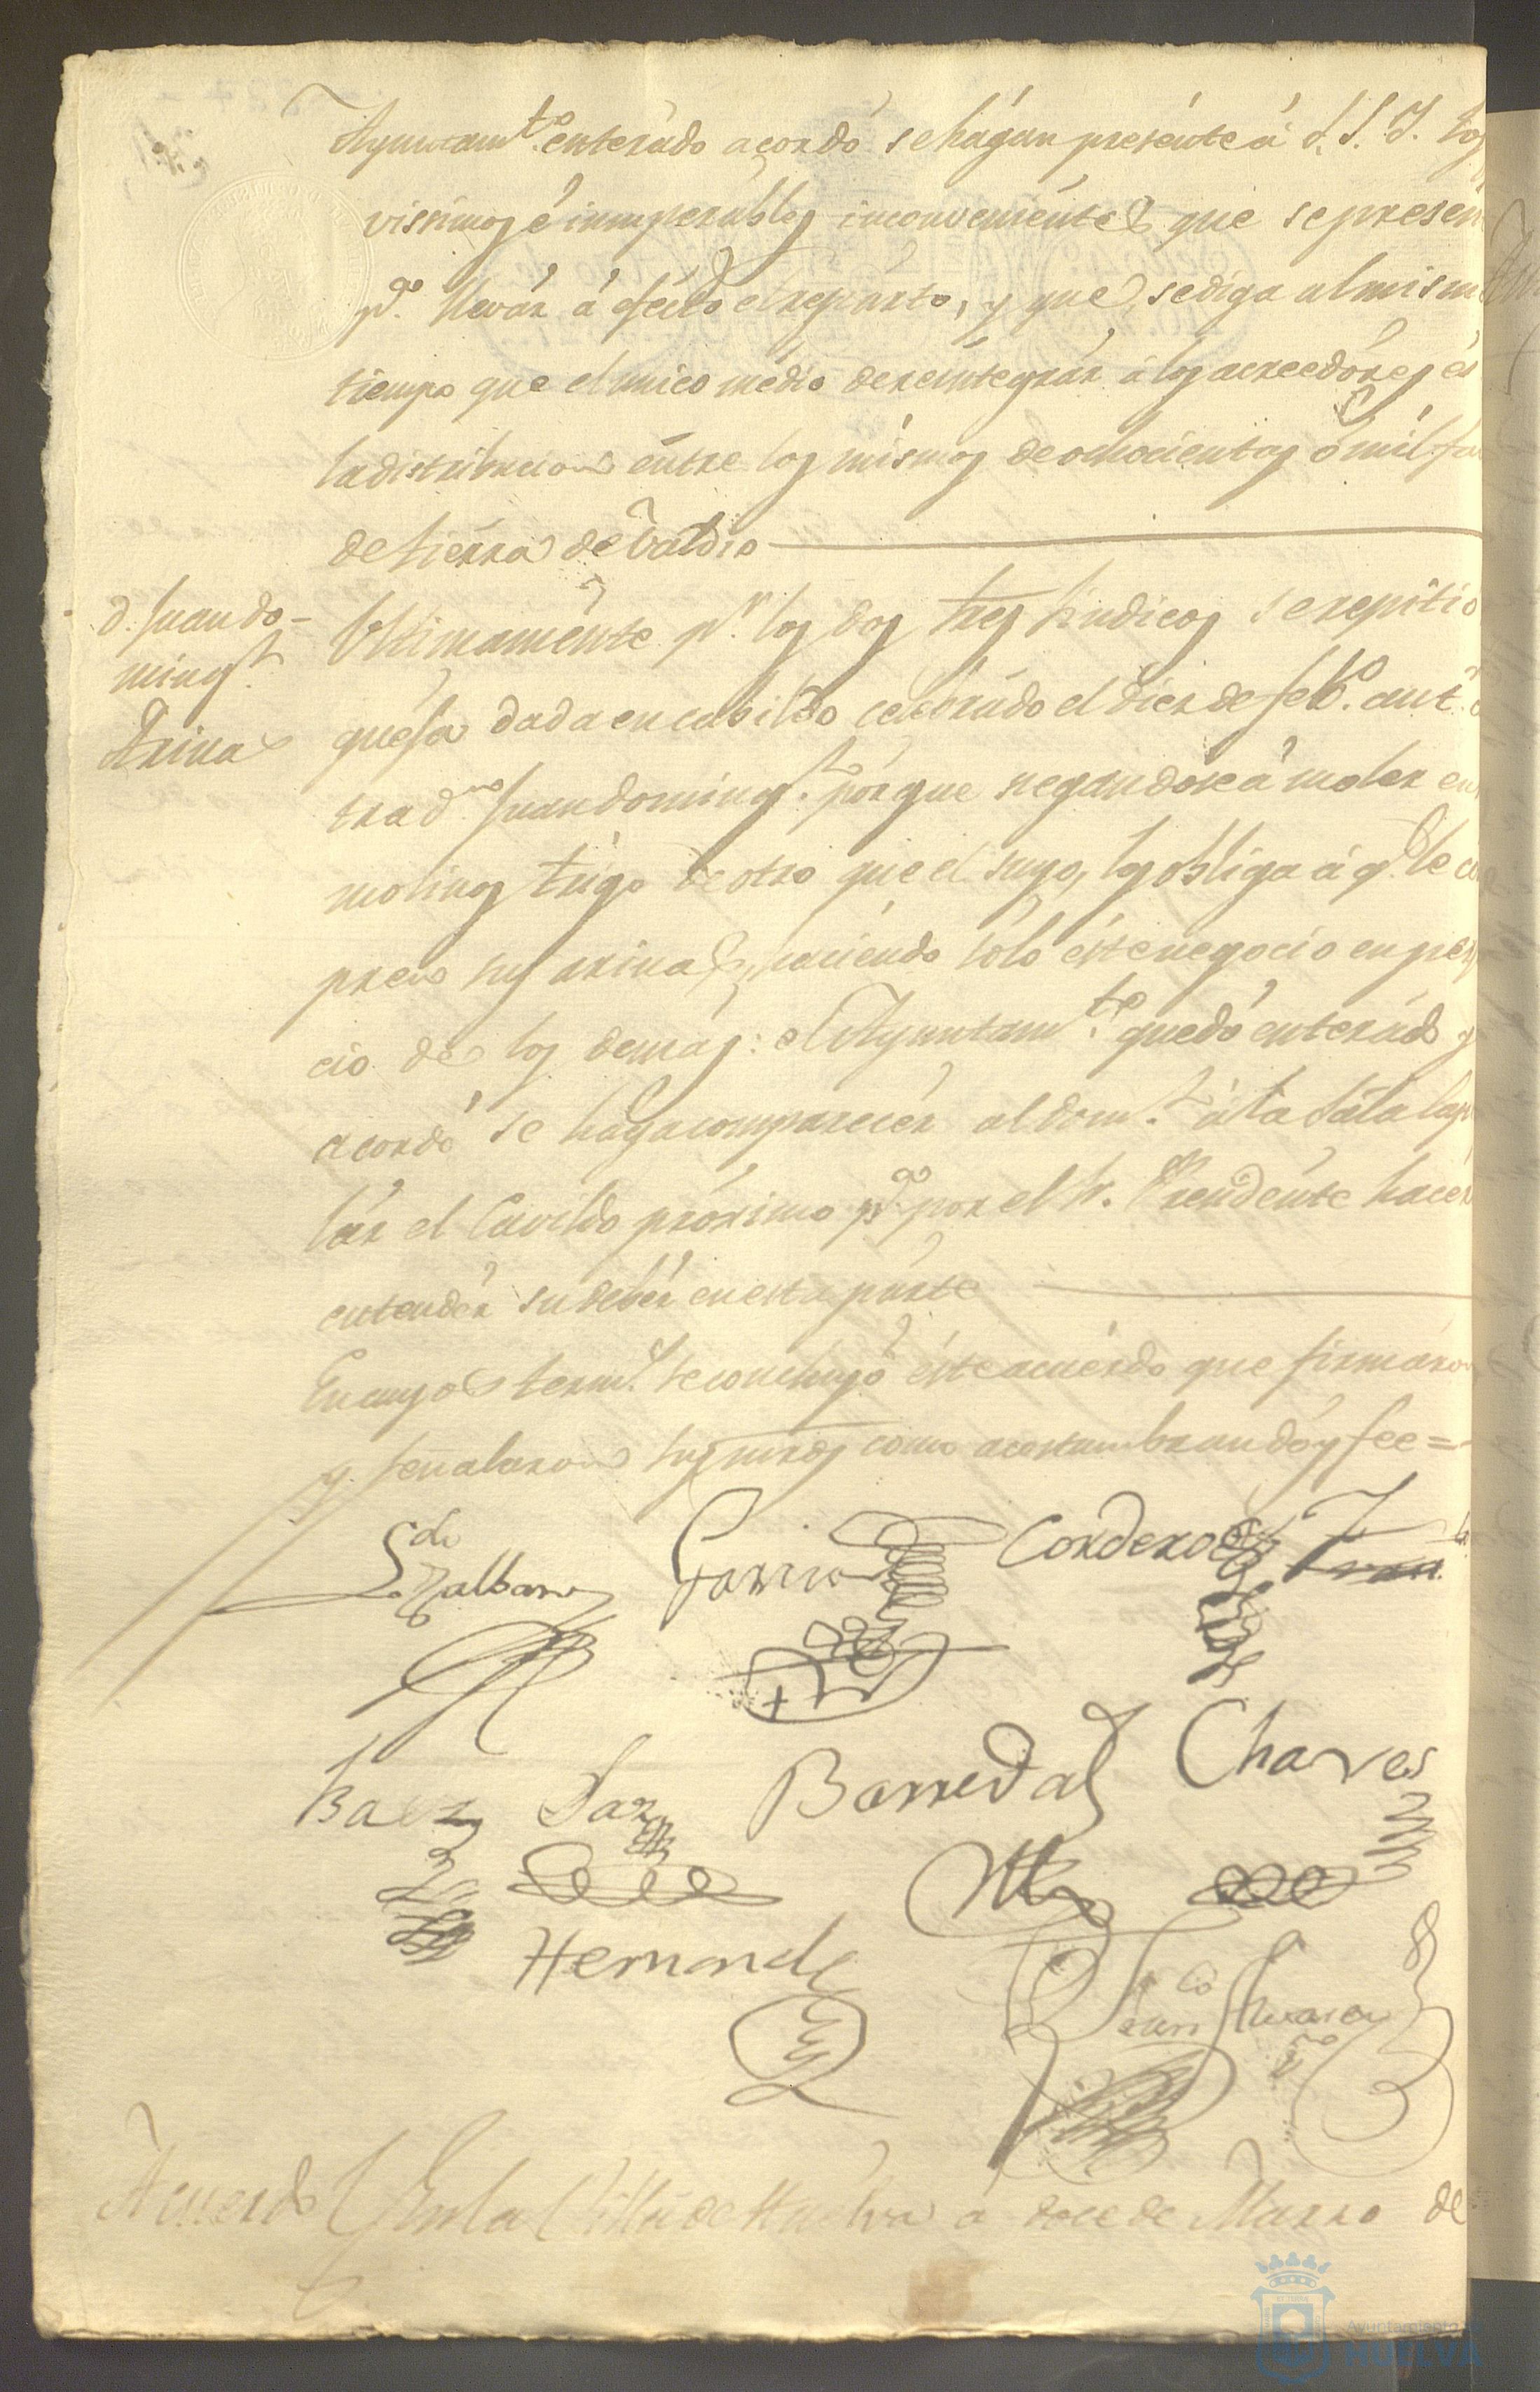 Ayuntam.to enterado acordó se hágan presénte á S. S. Y. los
vissimos é insuperábles inconveniéntes que se presen
p.a llevár á efécto el repárto, y que se diga al mism
tiempo que el unico médio de reintegrár á los acreedóres és
la distribucion éntre los mismos de ochocientas ó mil fa
de tierra de baldio
D. Juan do-
ming.z
Arinas
Ultimaménte p.r los dos tres Sindicos se repitio
quesa dada en cabildo celebrádo el diez de feb.o ant.r
tra d.n Juan doming.z pórque negandose á moler en
molinos trigo de otro que el suyo, los obliga á q.e le co
pren sus arinas, haciéndo sólo éste negocio en perj
cio de los demás: el Ayuntam.to quedó enterádo y
acordó se hága comparecér al dom.z á la Sala Cap
lár el Cavildo próximo p.a por el Sr. Presidénte hacer
entendér su debér en esta párte
En cuyos term.s se concluyó éste acuérdo que firmáron
y señalaron sus mrds como acostumbran dóy fee =
L.do Zalbar
Garrido
Cordero
Fran.
Baez
Saz
Barreda
Chaves
Hernandz
Fran.co Alvarez
Acuerdo En la Villa de Huelva á doce de Marzo de
Ayuntamiento de
HUELVA